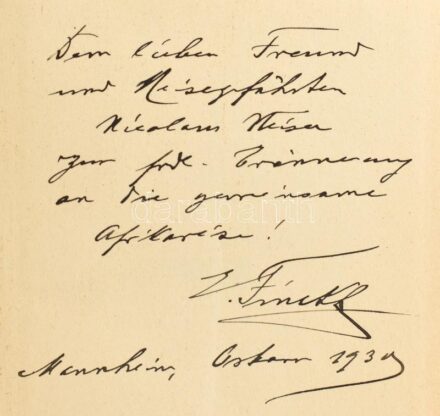 Dem lieben Freund
und Reisegefährten
Nicolaus
zur frdl. Erinnerung
an die gemeinsame
Afrikareise!
E. Finckh
Mannheim, Ostern 1930
darabanth